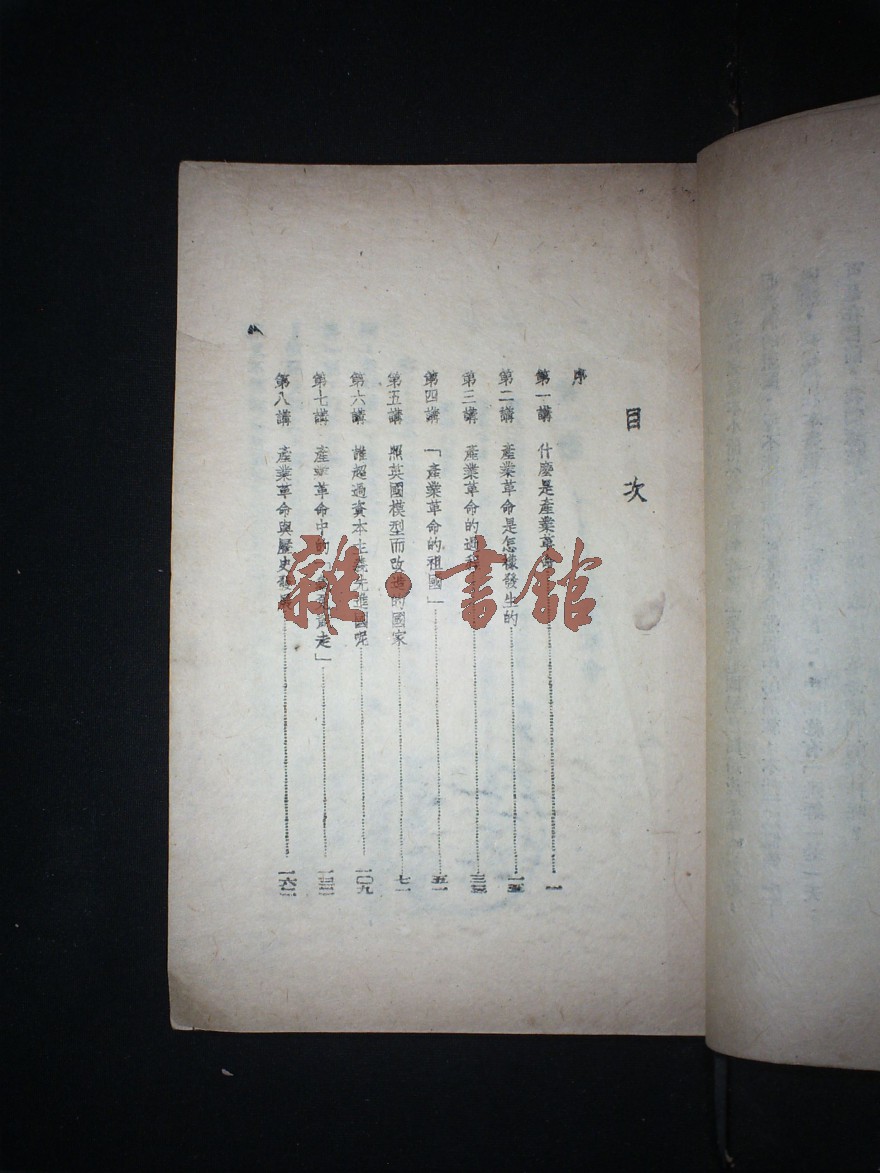 目次
序
第一講 什麼是產業革命 一
第二講 產業革命是怎樣發生的
第三講 產業革命的過程
第四講 「產業革命的祖國」 五一
第五講 照英國模型而改造的國家 七一
第六講 誰超過資本主義先進國呢 一〇九
第七講 產業革命中的 走」
第八講 產業革命與歷史發展
雜·書館